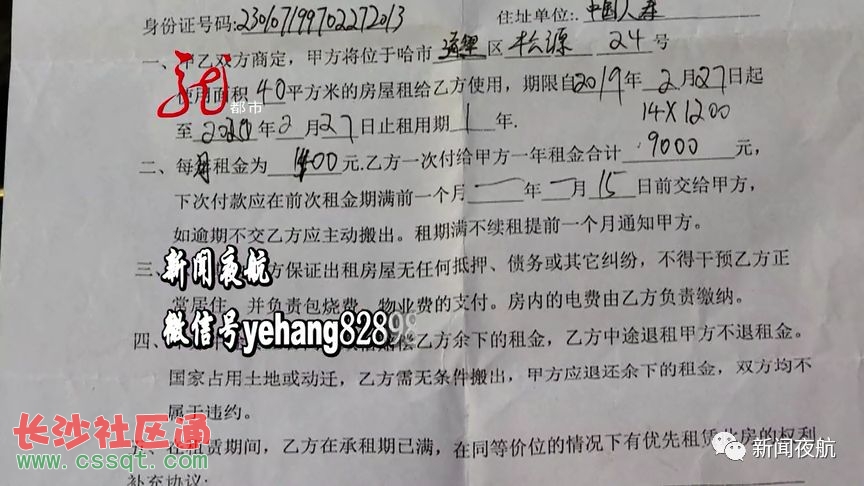 身份证号码:230107199702272013 住址单位:中国人寿
一、甲乙双方商定，甲方将位于哈市 道里 区 松源 24 号
使用面积 40 平方米的房屋租给乙方使用，期限自2019年 2月27日起
至 2020年2月27日止租用期 1 年. 14×1200
二、每月租金为 1400 元.乙方一次付给甲方一年租金合计 9000 元，
下次付款应在前次租金期满前一个月 一 年 一 月 15 日前交给甲方，
如逾期不交乙方应主动搬出。租期满不续租提前一个月通知甲方。
三、方保证出租房屋无任何抵押、债务或其它纠纷，不得干预乙方正
常居住，并负责包烧费、物业费的支付。房内的电费由乙方负责缴纳。
四、偿乙方余下的租金，乙方中途退租甲方不退租金。
国家占用土地或动迁，乙方需无条件搬出，甲方应退还余下的租金，双方均不
属于违约。
五、在租赁期间，乙方在承租期已满，在同等价位的情况下有优先租赁此房的权利
补充协议:
都市
新闻夜航
微信号yehang8289
长沙社区通
www.cssqt.com
新闻夜航